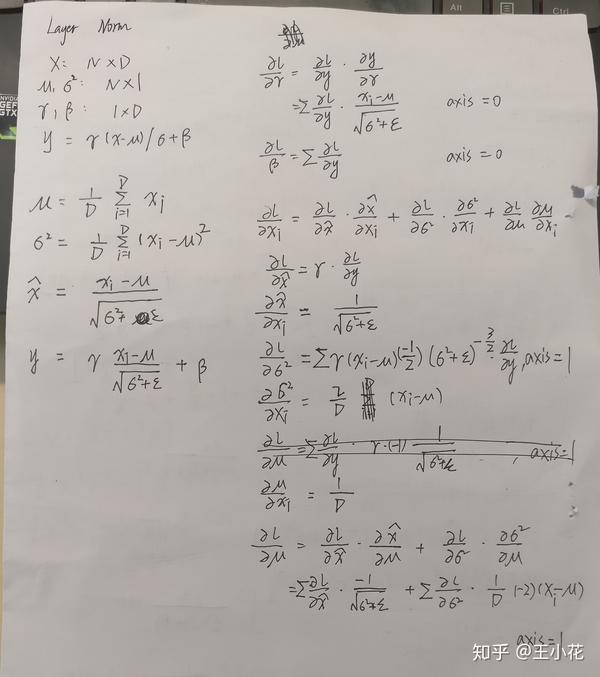 Layer Norm
X: N×D
μ, σ²: N×1
γ, β: 1×D
y = γ(x-μ)/σ+β
μ = 1/D Σ_{i=1}^{D} x_i
σ² = 1/D Σ_{i=1}^{D} (x_i-μ)²
x̂ = (x_i-μ)/√(σ²+ε)
y = γ (x_i-μ)/√(σ²+ε) + β
∂L/∂γ = ∂L/∂y · ∂y/∂γ
=Σ ∂L/∂y · (x_i-μ)/√(σ²+ε) axis=0
∂L/β = Σ ∂L/∂y axis=0
∂L/∂x_i = ∂L/∂x̂ · ∂x̂/∂x_i + ∂L/∂σ² · ∂σ²/∂x_i + ∂L/∂μ ∂μ/∂x_i
∂L/∂x̂ = γ · ∂L/∂y
∂x̂/∂x_i = 1/√(σ²+ε)
∂L/∂σ² = Σγ(x_i-μ)(-1/2)(σ²+ε)^{-3/2} · ∂L/∂y, axis=1
∂σ²/∂x_i = 2/D (x_i-μ)
∂L/∂μ = Σ ∂L/∂y · γ·(-1) 1/√(σ²+ε), axis=1
∂μ/∂x_i = 1/D
∂L/∂μ = ∂L/∂x̂ · ∂x̂/∂μ + ∂L/∂σ² · ∂σ²/∂μ
=Σ ∂L/∂x̂ · -1/√(σ²+ε) + Σ ∂L/∂σ² · 1/D (-2)(x_i-μ)
axis=1
Alt
Ctrl
NVIDIA
GEF
GTX
知乎 @王小花